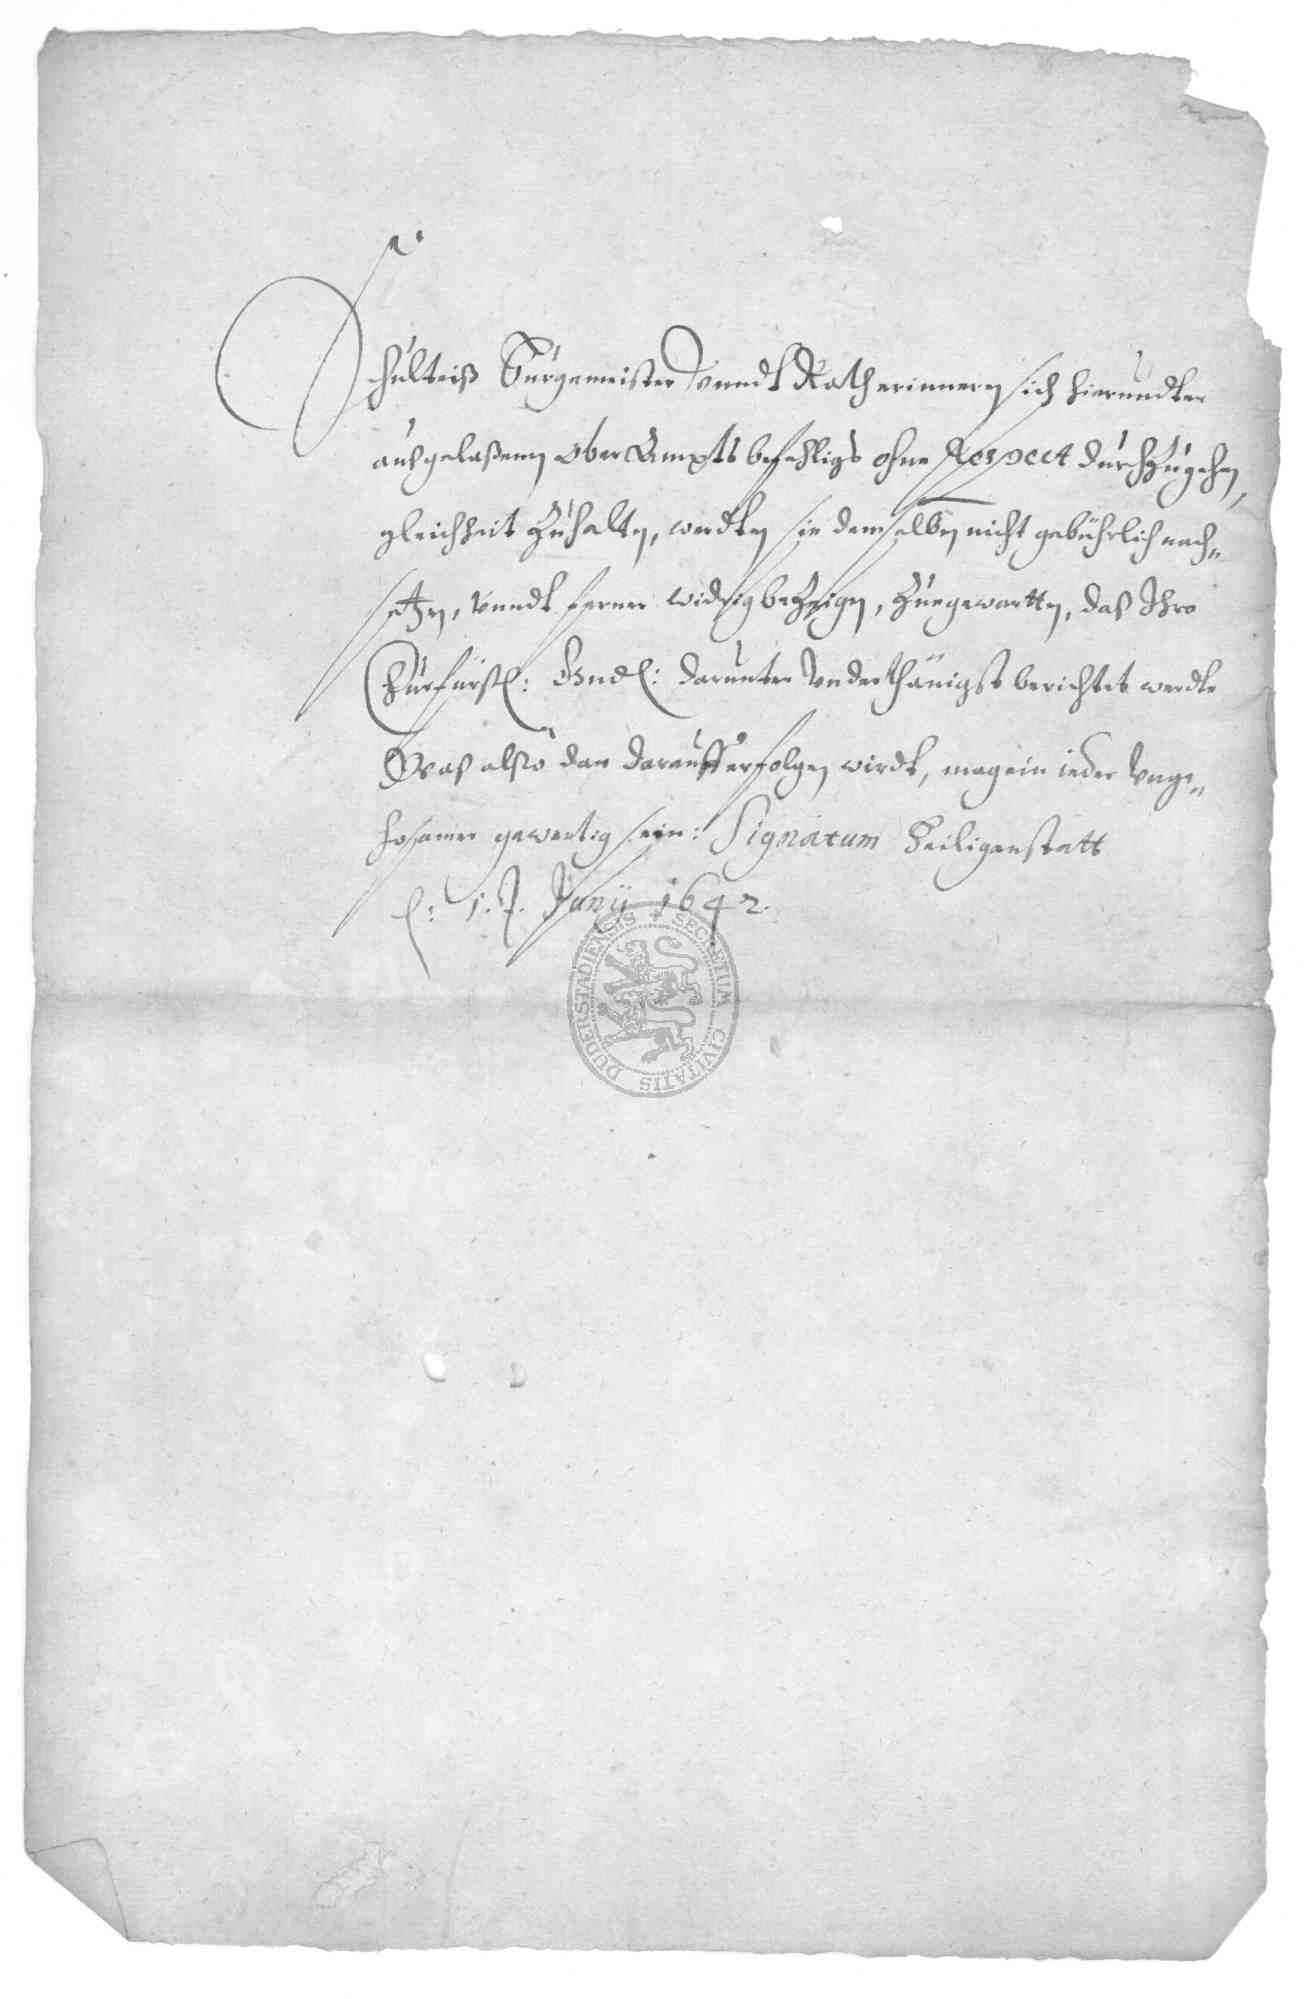 Schulteiß Burgemeister vnndt Rath erinnern sich hierundter
außgelaßenen Ober Ampts befehligs ohne Respect durchzugehen,
gleichheit zuhalten, werdten sie demselben nicht gebührlich nach-
setzen, vnndt ferner widrig bezeigen, zuegewartten, daß Ihro
Churfürstl: Gndl: darunter vnderthänigst berichtet werdte
Waß alßo dan darauff erfolgen wirdt, mag ein ieder vnge-
hosamer gewertig sein: Signatum Heiligenstatt
Junÿ 1642.
SECRETUM CIVITATIS DUDERSTADIENSIS